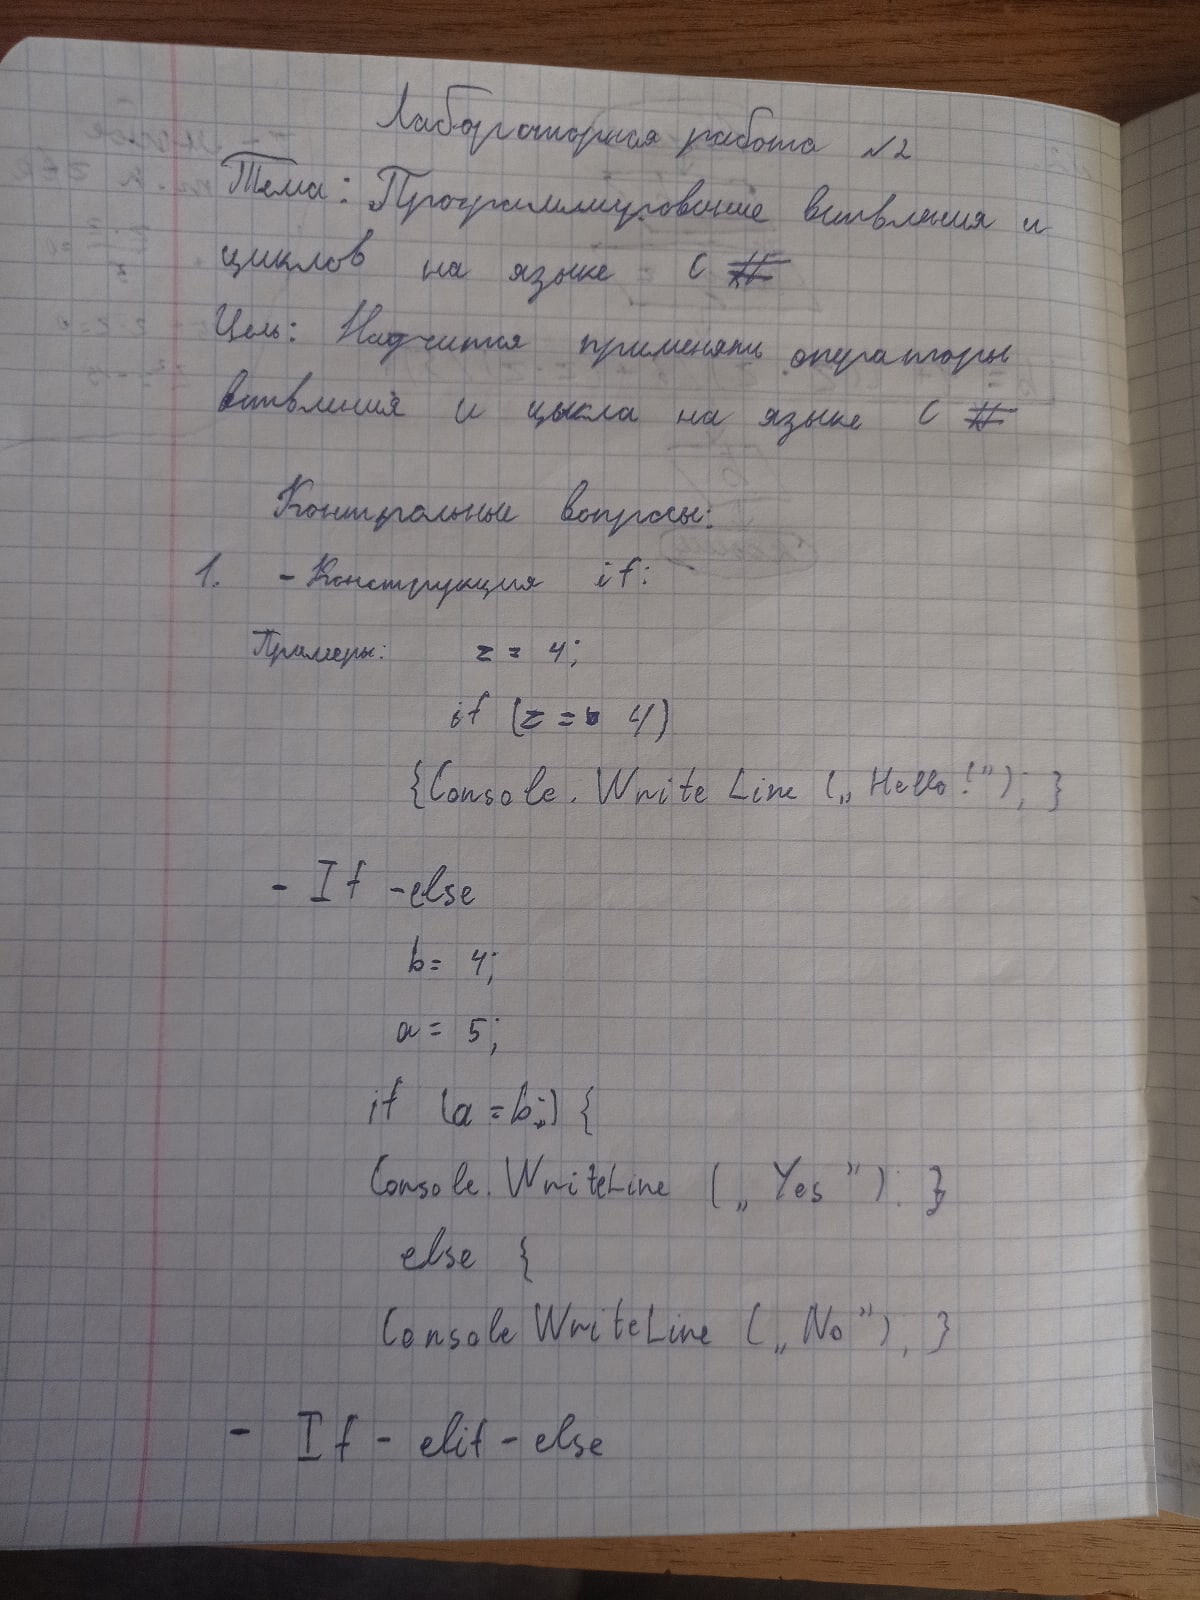 Лабораторная работа №2
Тема: Программирование витвления и
циклов на языке C #
Цель: Научится применять операторы
витвления и цикла на языке C #
Контрольные вопросы:
1. - Конструкция if:
Примеры: z = 4;
if (z = 4)
{Console. Write Line („Hello!”); }
- If -else
b = 4;
a = 5;
if (a = b;) {
Console. WriteLine („Yes”); }
else {
Console WriteLine („No”); }
- If - elif - else